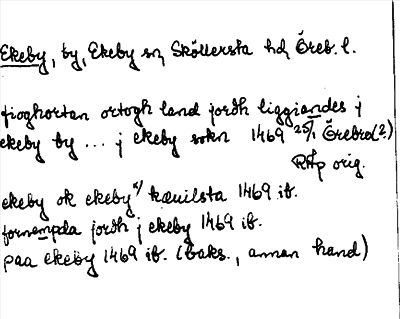 Ekeby, by, Ekeby sn, Sköllersta hd, Öreb. l.
fioghortan ortogh land jordh liggiandes j
ekeby by ... j ekeby sokn 1469 25/1 Örebro (?)
RAp orig.
ekeby ok ekeby kæuilsta 1469 ib.
fornempda jordh j ekeby 1469 ib.
paa ekeby 1469 ib. (baks., annan hand)